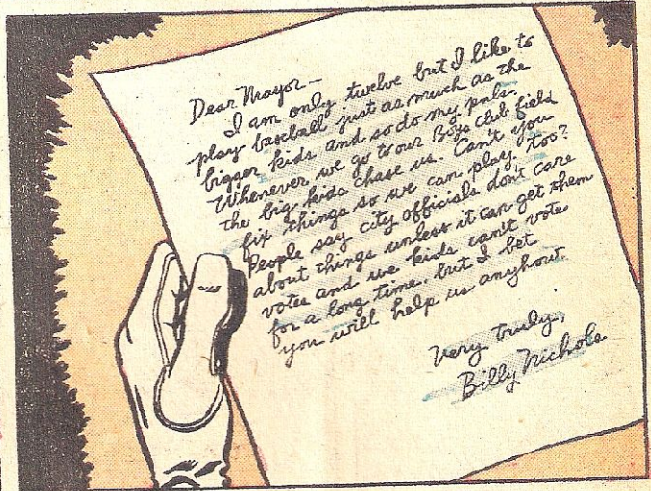 Dear Mayor—
I am only twelve but I like to
play baseball just as much as the
bigger kids and so do my pals.
Whenever we go to our Boys club field
the big kids chase us. Can't you
fix things so we can play, too?
People say city officials don't care
about things unless it can get them
votes and we kids can't vote
for a long time. but I bet
you will help us anyhow.
Very truly,
Billy Nichols